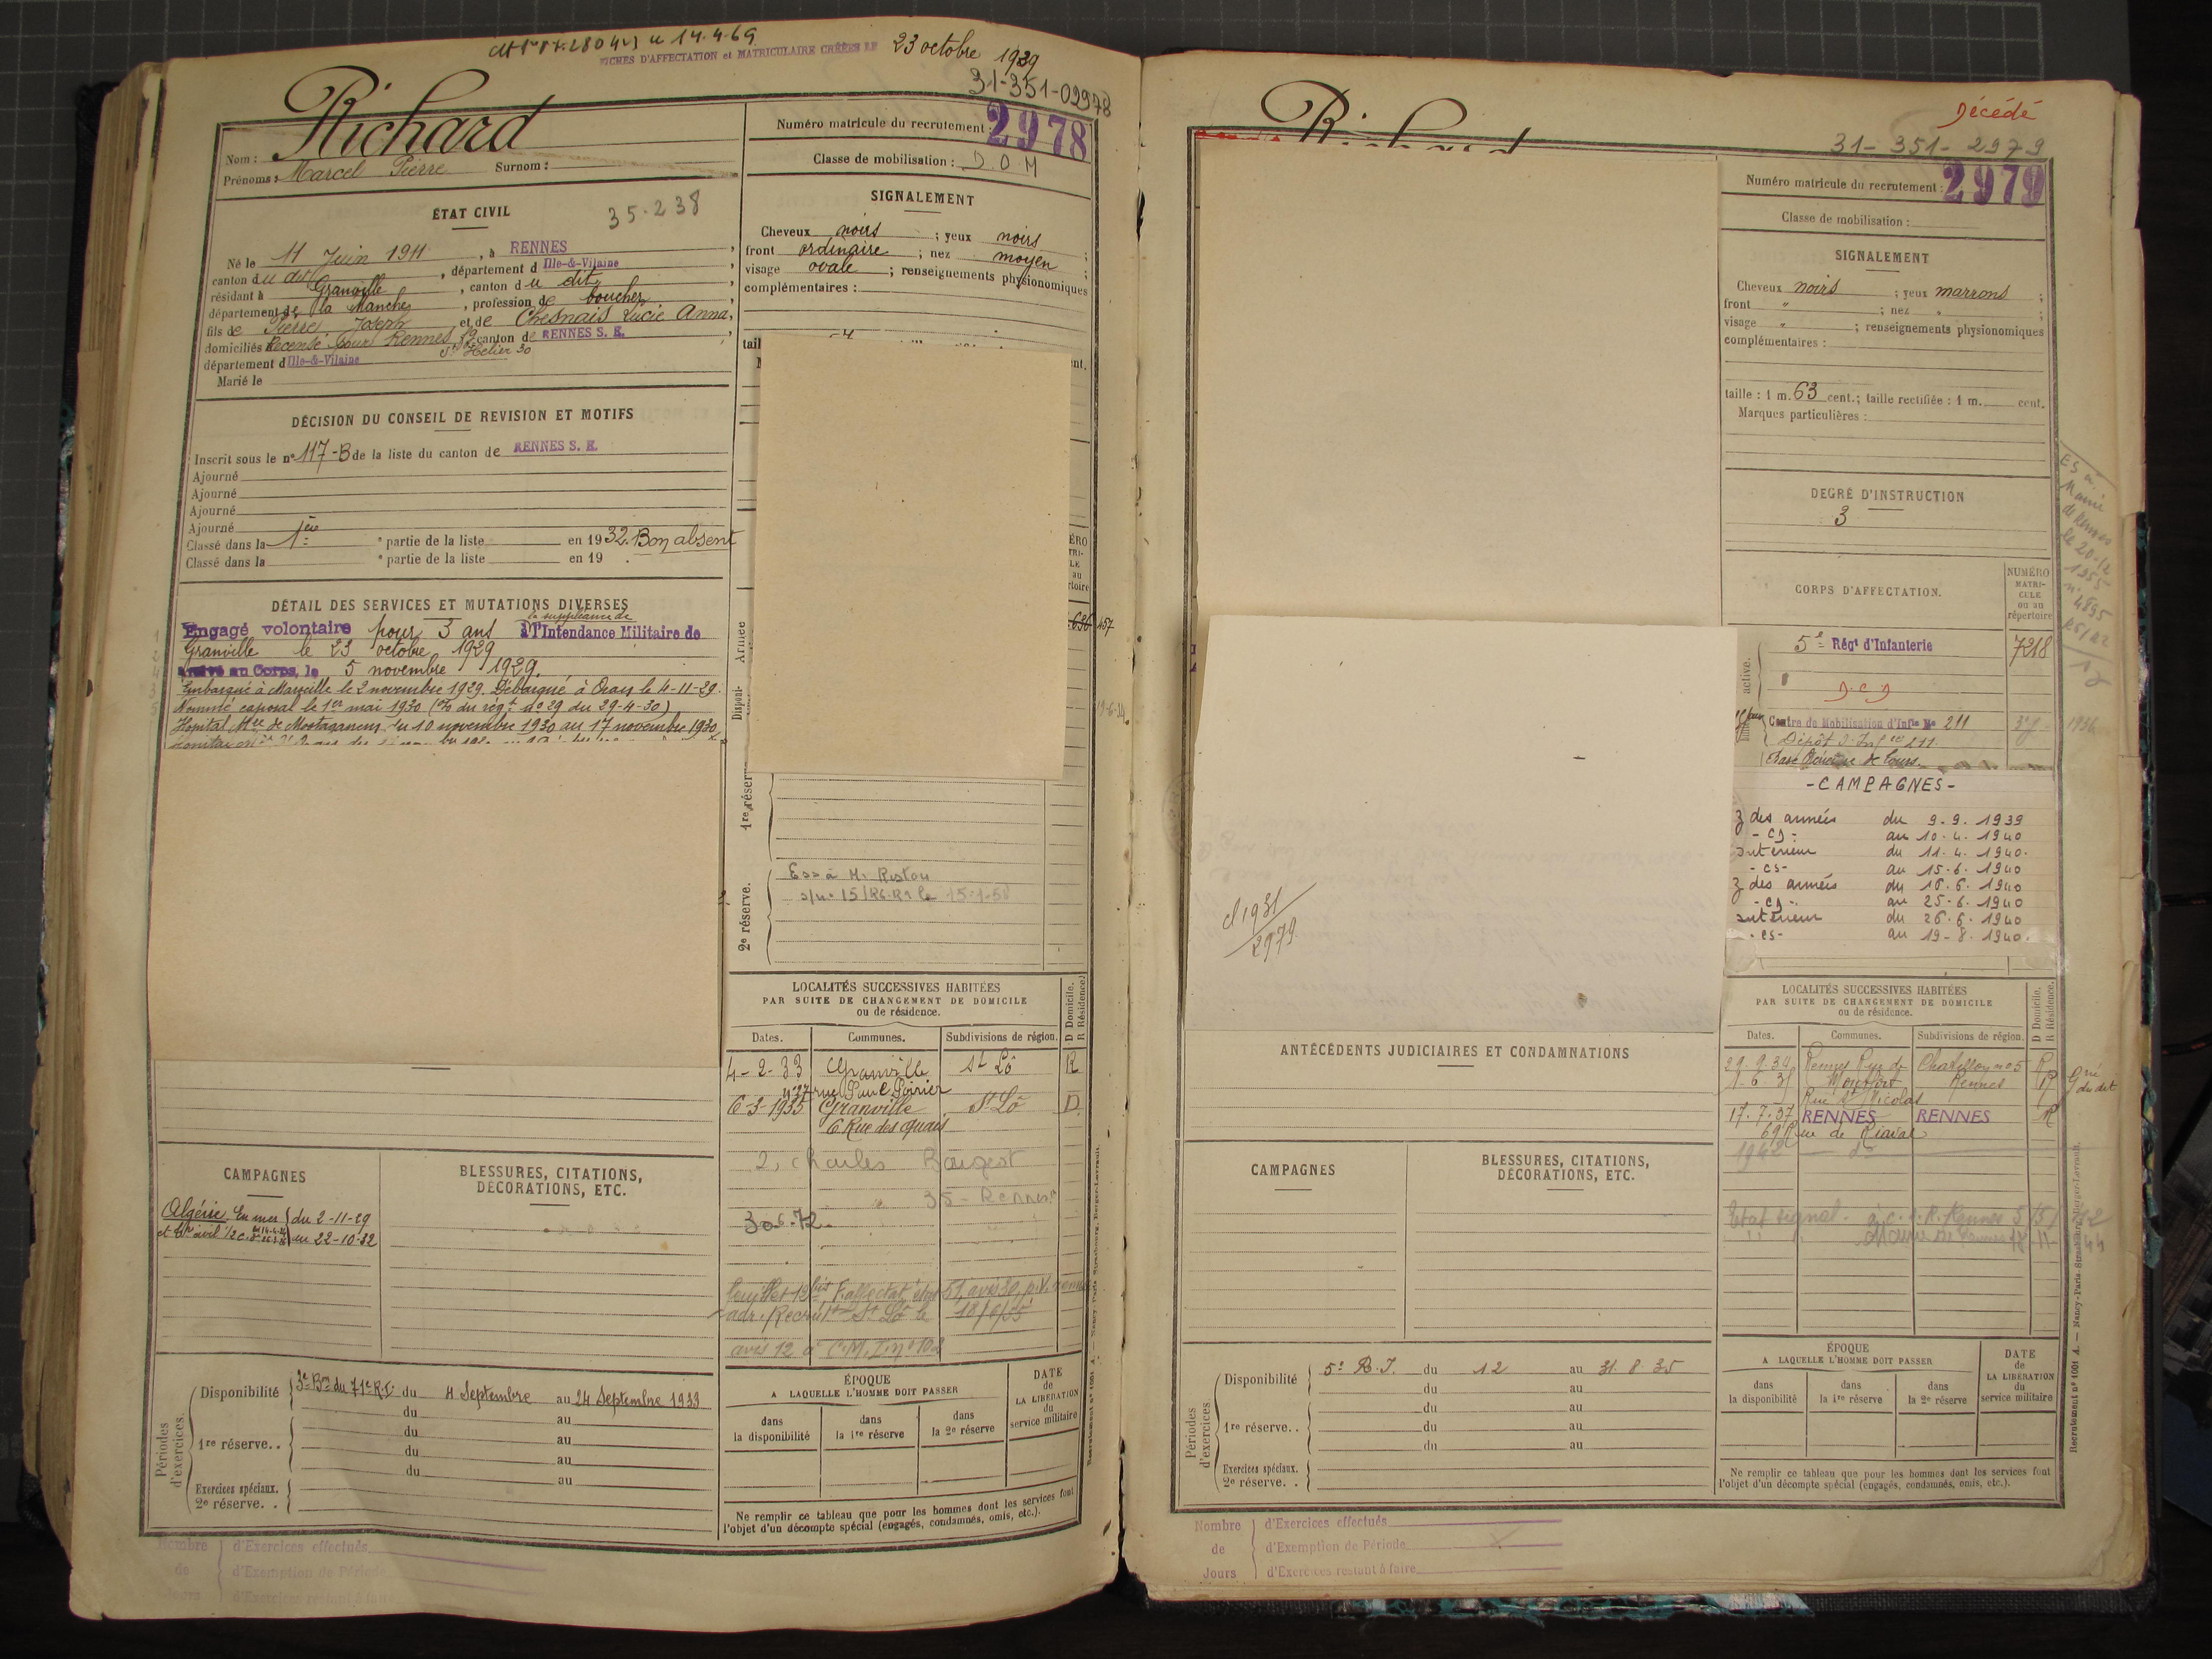 FICHES D'AFFECTATION et MATRICULAIRE CRÉÉES LE 23 octobre 1939
31-351-02978
Nom : Richard
Prénoms : Marcel Pierre Surnom :
Numéro matricule du recrutement : 2978
Classe de mobilisation : D.O.M
ÉTAT CIVIL
35.238
Né le 11 Juin 1911, à RENNES,
canton du dit, département d Ille-&-Vilaine,
résidant à Granville, canton du dit,
département de la Manche, profession de boucher,
fils de Pierre Joseph et de Chesnais Lucie Anna,
domiciliés Recensé pour Rennes, canton de RENNES S. E.
St Helier 30
département d Ille-&-Vilaine
Marié le
SIGNALEMENT
Cheveux noirs ; yeux noirs ;
front ordinaire ; nez moyen ;
visage ovale ; renseignements physionomiques
complémentaires :
tail
DÉCISION DU CONSEIL DE REVISION ET MOTIFS
Inscrit sous le nº 117-B de la liste du canton de RENNES S. E.
Ajourné
Ajourné
Ajourné
Ajourné
Classé dans la 1ère partie de la liste en 1932. Bon absent
Classé dans la partie de la liste en 19 .
DÉTAIL DES SERVICES ET MUTATIONS DIVERSES
la suppléance de
Engagé volontaire pour 3 ans à l'Intendance Militaire de
Granville le 23 octobre 1929
Arrivé au Corps, le 5 novembre 1929.
Embarqué à Marseille le 2 novembre 1929. Débarqué à Oran le 4-11-29.
Nommé caporal le 1er mai 1930 (O/ du régt. nº 29 du 29-4-30)
Hopital Mre de Mostaganem du 10 novembre 1930 au 17 novembre 1930
Disponi- Armée
1re réserve
2e réserve.
15-1-58
LOCALITÉS SUCCESSIVES HABITÉES
PAR SUITE DE CHANGEMENT DE DOMICILE
ou de résidence.
D Domicile.
R Résidence.
Dates. Communes. Subdivisions de région.
4-2-33 Granville St Lô R
rue Paul Poirier
6-3-1935 Granville St Lô D
6 Rue des quais
2, Charles
35 - Rennes
30-6-72
CAMPAGNES
Algérie En mer du 2-11-29
au 22-10-32
BLESSURES, CITATIONS,
DÉCORATIONS, ETC.
Périodes d'exercices.
Disponibilité 3e Bon du 71e R.I. du 4 Septembre au 24 Septembre 1933
du au
1re réserve. . du au
du au
du au
Exercices spéciaux.
2e réserve. .
ÉPOQUE
A LAQUELLE L'HOMME DOIT PASSER
dans la disponibilité
dans la 1re réserve
dans la 2e réserve
DATE
de
LA LIBÉRATION
du
service militaire
Ne remplir ce tableau que pour les hommes dont les services font
l'objet d'un décompte spécial (engagés, condamnés, omis, etc.).
Nombre de Jours
d'Exercices effectués
d'Exemption de Période
d'Exercices restant à faire
Décédé
31-351-2979
Richard
Numéro matricule du recrutement : 2979
Classe de mobilisation :
SIGNALEMENT
Cheveux noirs ; yeux marrons ;
front " ; nez " ;
visage " ; renseignements physionomiques
complémentaires :
taille : 1 m. 63 cent.; taille rectifiée : 1 m. cent.
Marques particulières :
DEGRÉ D'INSTRUCTION
3
CORPS D'AFFECTATION.
NUMÉRO
MATRI-
CULE
ou au
répertoire
5e Régt d'Infanterie 7218
D.C.D
Centre de Mobilisation d'Infie Nº 211
Dépôt d'Infie 211
active.
- CAMPAGNES -
Z des armées du 9.9.1939
- cs - au 10.4.1940
Intérieur du 11.4.1940.
- cs - au 15.6.1940
Z des armées du 16.6.1940
- cs - au 25.6.1940
Intérieur du 26.6.1940
- cs - au 19-8-1940.
cl 1931
2979
ANTÉCÉDENTS JUDICIAIRES ET CONDAMNATIONS
LOCALITÉS SUCCESSIVES HABITÉES
PAR SUITE DE CHANGEMENT DE DOMICILE
ou de résidence.
D Domicile.
R Résidence.
Dates. Communes. Subdivisions de région.
Rennes Rue de Chatillon nº 5
Rennes
Rue St Nicolas
17.7.37 RENNES RENNES R
69 Rue de Riaval
1962
CAMPAGNES
BLESSURES, CITATIONS,
DÉCORATIONS, ETC.
Périodes d'exercices.
Disponibilité 5e R.I. du 12 au 31.8.35
du au
du au
1re réserve. . du au
du au
Exercices spéciaux.
2e réserve. .
ÉPOQUE
A LAQUELLE L'HOMME DOIT PASSER
dans la disponibilité
dans la 1re réserve
dans la 2e réserve
DATE
de
LA LIBÉRATION
du
service militaire
Ne remplir ce tableau que pour les hommes dont les services font
l'objet d'un décompte spécial (engagés, condamnés, omis, etc.).
Recrutement nº 1001 A. — Nancy-Paris-Strasbourg, Berger-Levrault.
Nombre de Jours
d'Exercices effectués
d'Exemption de Période
d'Exercices restant à faire